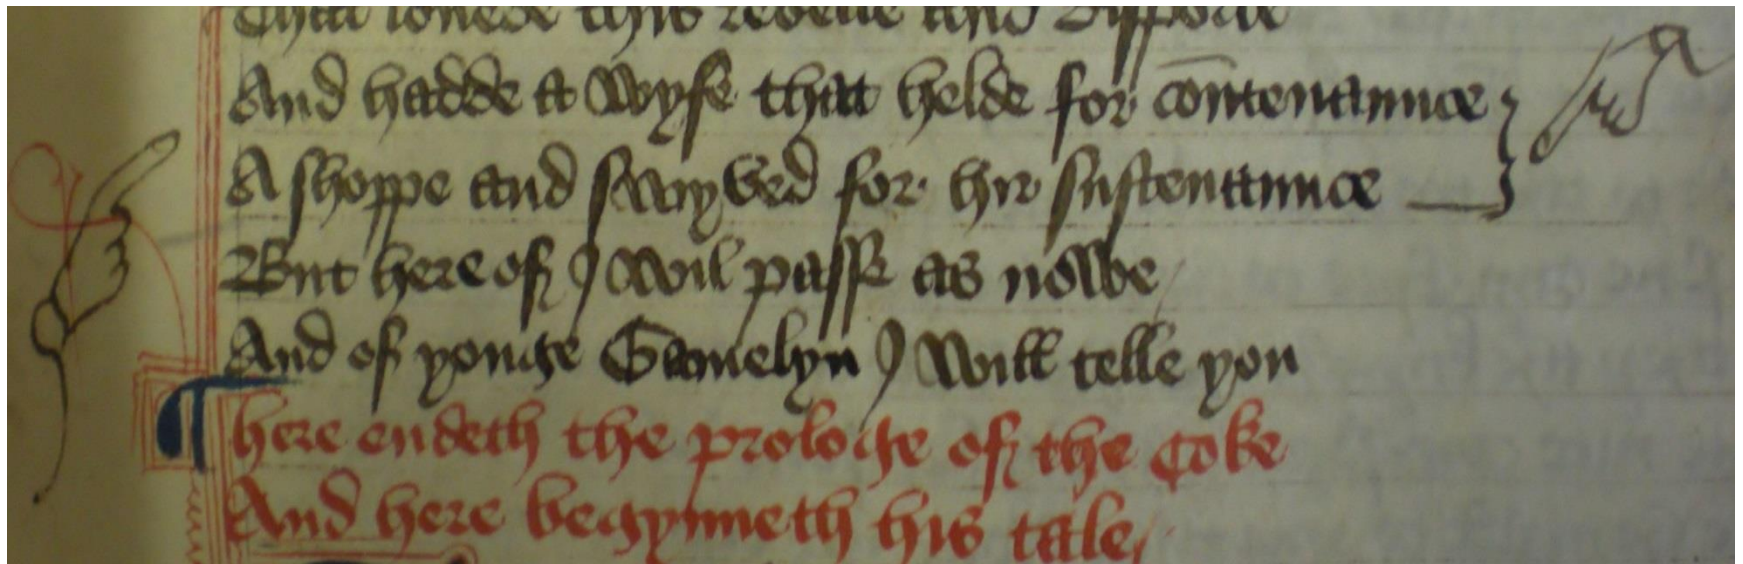 That louede this reuelle and disporte
And hadde a wyfe that helde for cōntenaunce
A shoppe and swyved for hir sustenaunce
But here of I wil passe as nowe
And of yonge Gamelyn I will telle you
¶ here endeth the prologe of the Coke
And here begynneth his tale